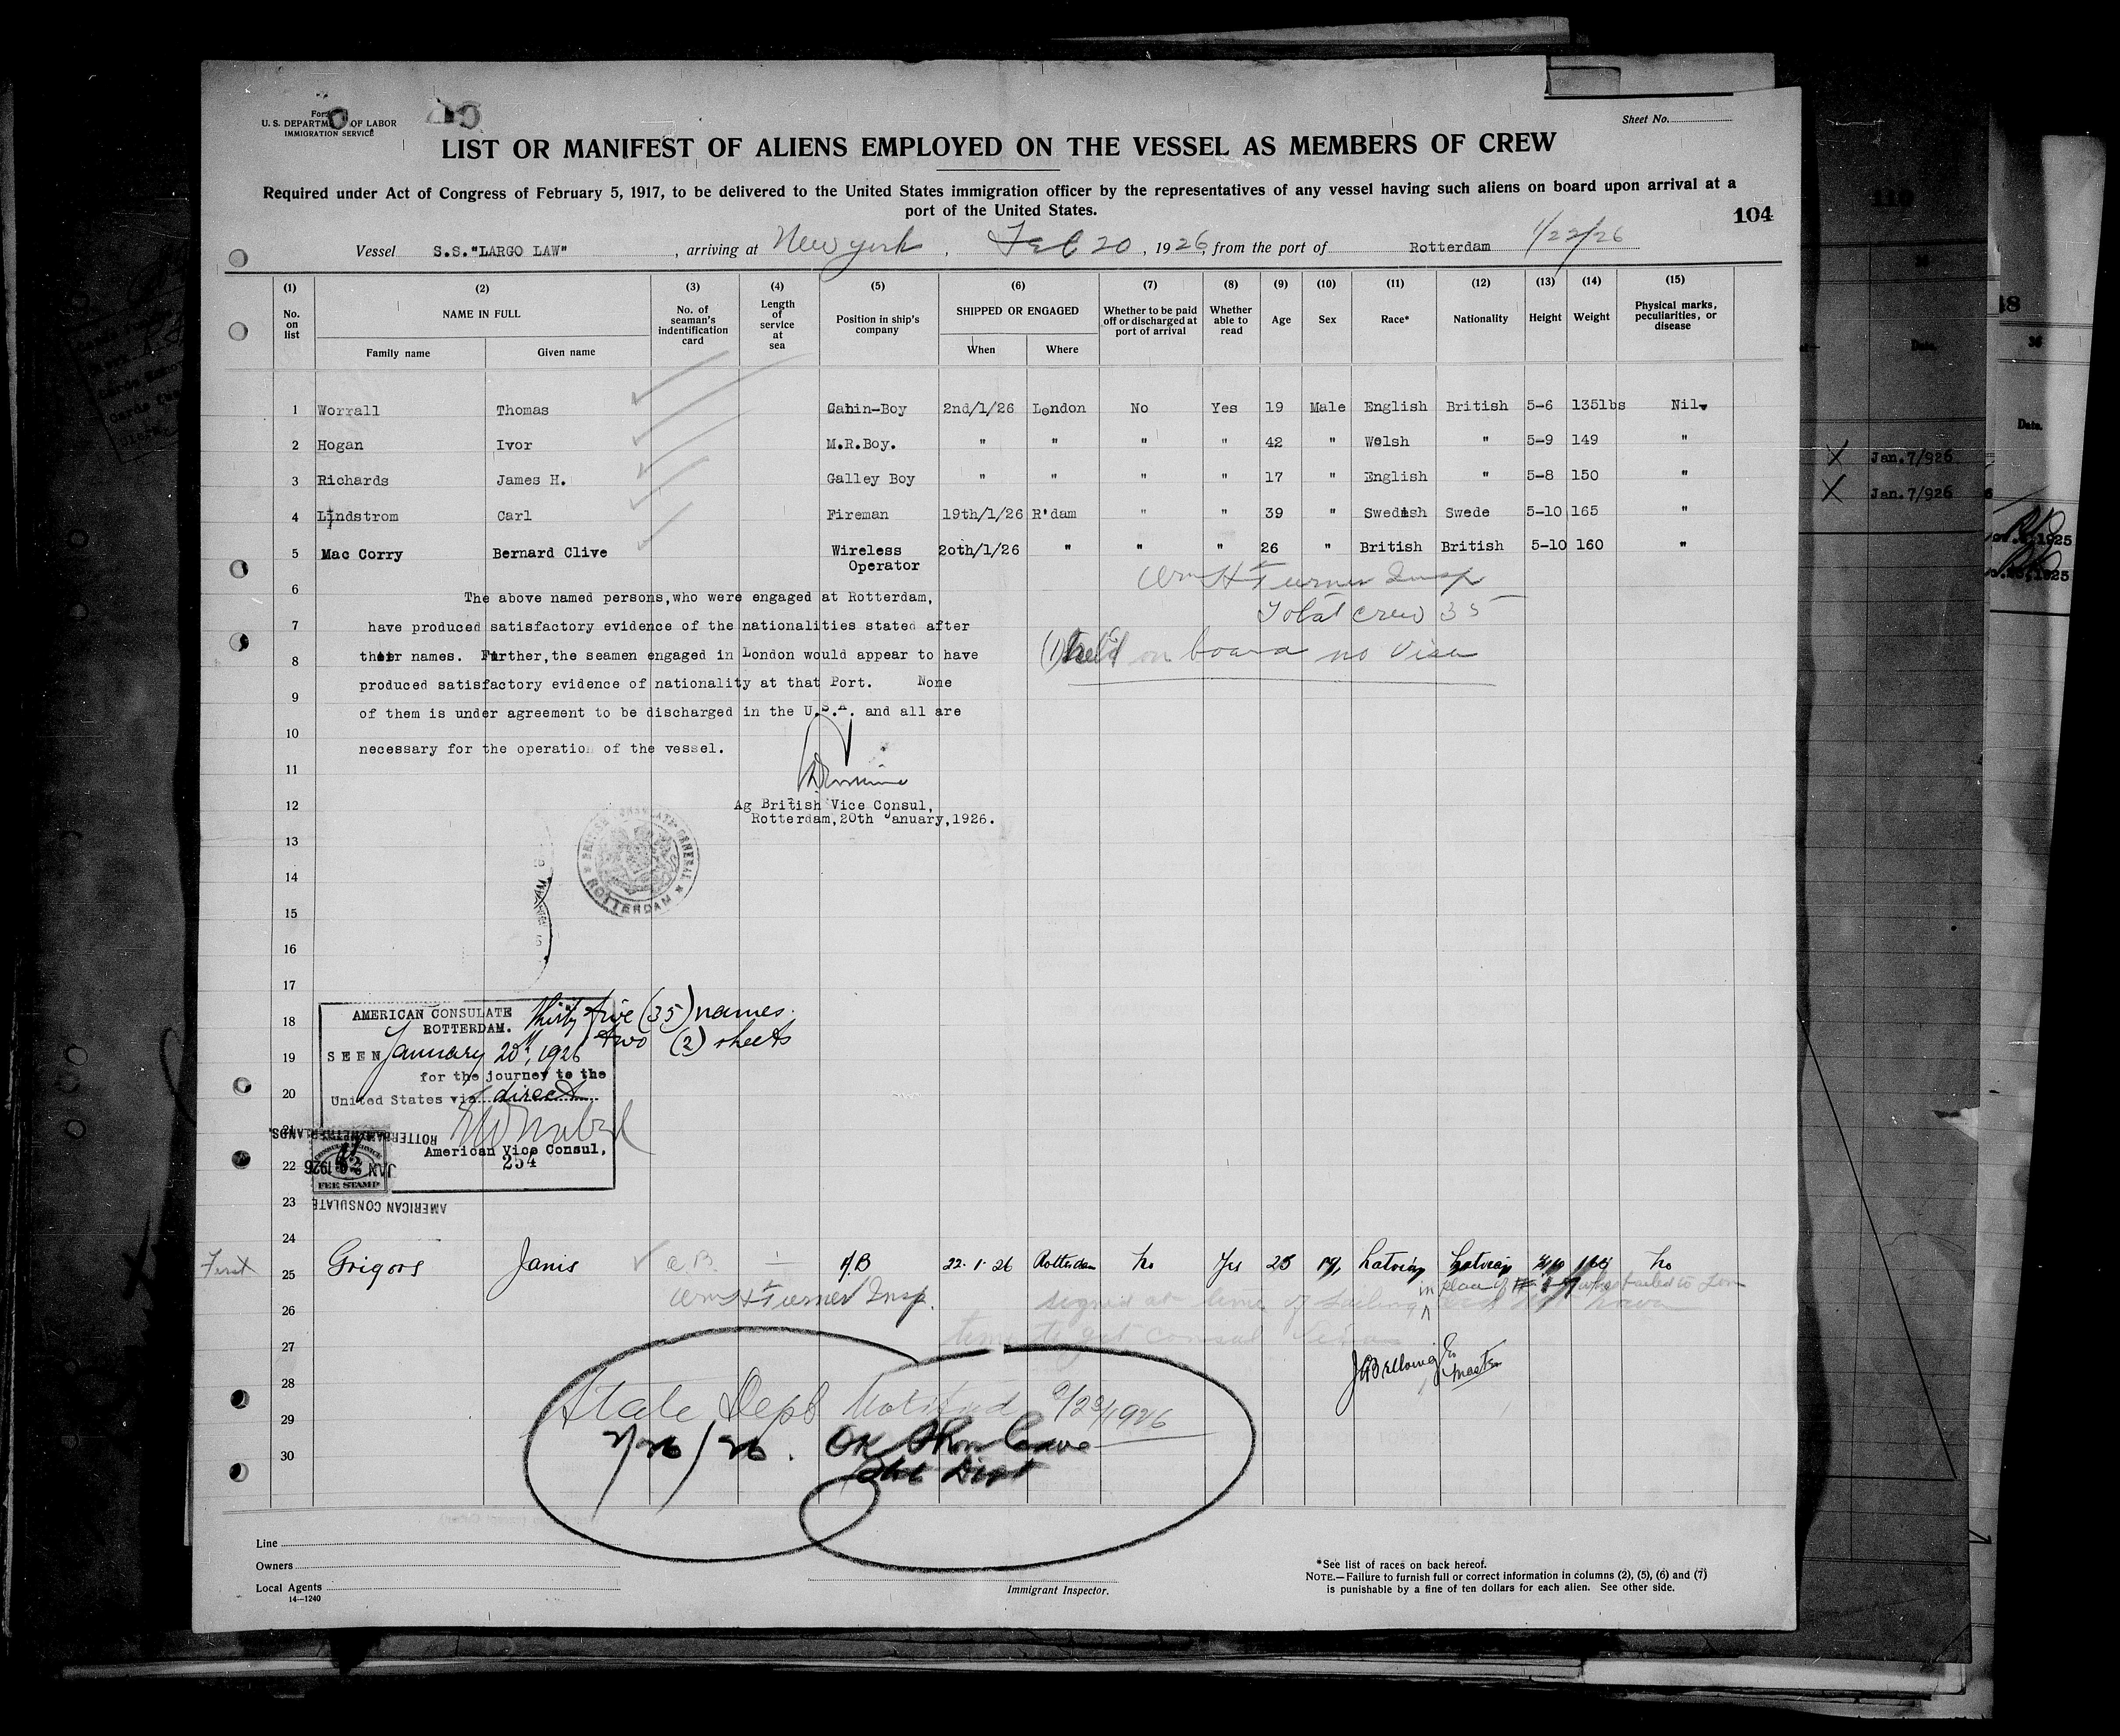 U. S. DEPARTMENT OF LABOR
IMMIGRATION SERVICE
Sheet No.
LIST OR MANIFEST OF ALIENS EMPLOYED ON THE VESSEL AS MEMBERS OF CREW
Required under Act of Congress of February 5, 1917, to be delivered to the United States immigration officer by the representatives of any vessel having such aliens on board upon arrival at a
port of the United States.
104
Vessel S.S."LARGO LAW" , arriving at New York , Feb 20 , 1926, from the port of Rotterdam 1/22/26
(1) (2) (3) (4) (5) (6) (7) (8) (9) (10) (11) (12) (13) (14) (15)
No. on list
NAME IN FULL
Family name
Given name
No. of seaman's indentification card
Length of service at sea
Position in ship's company
SHIPPED OR ENGAGED
When
Where
Whether to be paid off or discharged at port of arrival
Whether able to read
Age
Sex
Race*
Nationality
Height
Weight
Physical marks, peculiarities, or disease
1 Worrall Thomas Cabin-Boy 2nd/1/26 London No Yes 19 Male English British 5-6 135lbs Nil.
2 Hogan Ivor M.R.Boy. " " " " 42 " Welsh " 5-9 149 "
3 Richards James H. Galley Boy " " " " 17 " English " 5-8 150 "
4 Lindstrom Carl Fireman 19th/1/26 R'dam " " 39 " Swedish Swede 5-10 165 "
5 Mac Corry Bernard Clive Wireless 20th/1/26 " " " 26 " British British 5-10 160 "
Operator
Wm H Turner Insp
6 The above named persons,who were engaged at Rotterdam,
Total crew 35
7 have produced satisfactory evidence of the nationalities stated after
8 their names. Further,the seamen engaged in London would appear to have
(1) held on board no Visa
produced satisfactory evidence of nationality at that Port. None
9
of them is under agreement to be discharged in the U.S.A. and all are
10
necessary for the operation of the vessel.
11
12 Ag British Vice Consul,
Rotterdam,20th January,1926.
13
BRITISH CONSULATE-GENERAL
ROTTERDAM
14
15
16
17
18 AMERICAN CONSULATE thirty five (35) names.
ROTTERDAM. two (2) sheets
19 SEEN January 20th, 1926
for the journey to the
20 United States via direct
21
ROTTERDAM, NETHERLANDS.
American Vice Consul,
254
22
JAN 20 1926
FEE STAMP
23
AMERICAN CONSULATE
24
First Grigors Janis A.B. — A.B 22.1.26 Rotterdam No Yes 25 M, Latvian Latvian No
25
Wm H Turner Insp.
in place of who failed to join
26 signed at time of sailing
27 time to get consul visa
Master
28
State Dept Notified 2/23/1926
29
2/26/26. OK
30
Line
Owners
Local Agents
14—1240
Immigrant Inspector.
*See list of races on back hereof.
NOTE.—Failure to furnish full or correct information in columns (2), (5), (6) and (7)
is punishable by a fine of ten dollars for each alien. See other side.
Jan.7/926
Jan.7/926
Date.